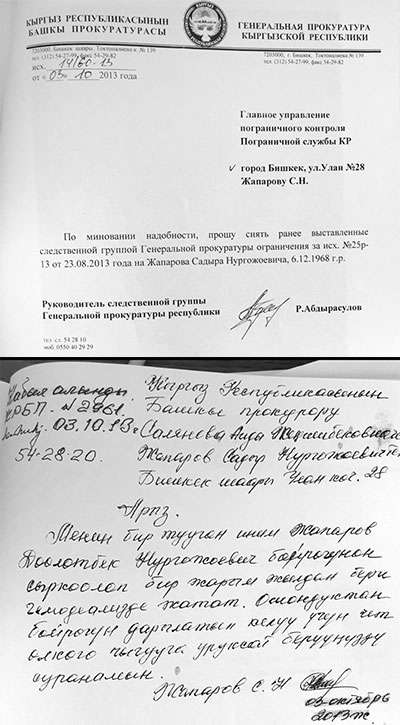 КЫРГЫЗ РЕСПУБЛИКАСЫНЫН
БАШКЫ ПРОКУРАТУРАСЫ
ГЕНЕРАЛЬНАЯ ПРОКУРАТУРА
КЫРГЫЗСКОЙ РЕСПУБЛИКИ
7203000, Бишкек шаары, Токтоналиева к. № 139
тел (312) 54-27-99, факс 54-29-82
7203000, г. Бишкек, Токтоналиева № 139
тел. (312) 54-27-99, факс 54-29-82
исх. 14/60-13
от « 03 » 10 2013 года
Главное управление
пограничного контроля
Пограничной службы КР
город Бишкек, ул.Улан №28
Жапарову С.Н.
По миновании надобности, прошу снять ранее выставленные
следственной группой Генеральной прокуратуры ограничения за исх. №25р-
13 от 23.08.2013 года на Жапарова Садыра Нургожоевича, 6.12.1968 г.р.
Руководитель следственной группы
Генеральной прокуратуры республики
Р.Абдырасулов
тел. сл. 54 28 10
моб. 0550 40 29 29
Кабыл алынды
Кыргыз Республикасынын
Башкы прокурору
03.10.13г
54-28-20.
Жапаров Садыр Нургожоевичтен
Бишкек шаары Улан көч. 28
Арыз.
Менин бир тууган иним Жапаров
Доолотбек Нургожоевич бөйрөгүнөн
сыркоолоп бир жарым жылдан бери
гемодиализде жатат. Ошондуктан
бөйрөгүн дарылатып келүү үчүн чет
өлкөгө чыгууга уруксат берүүнүздү
суранамын.
Жапаров С. Н
03-октябрь
2013ж